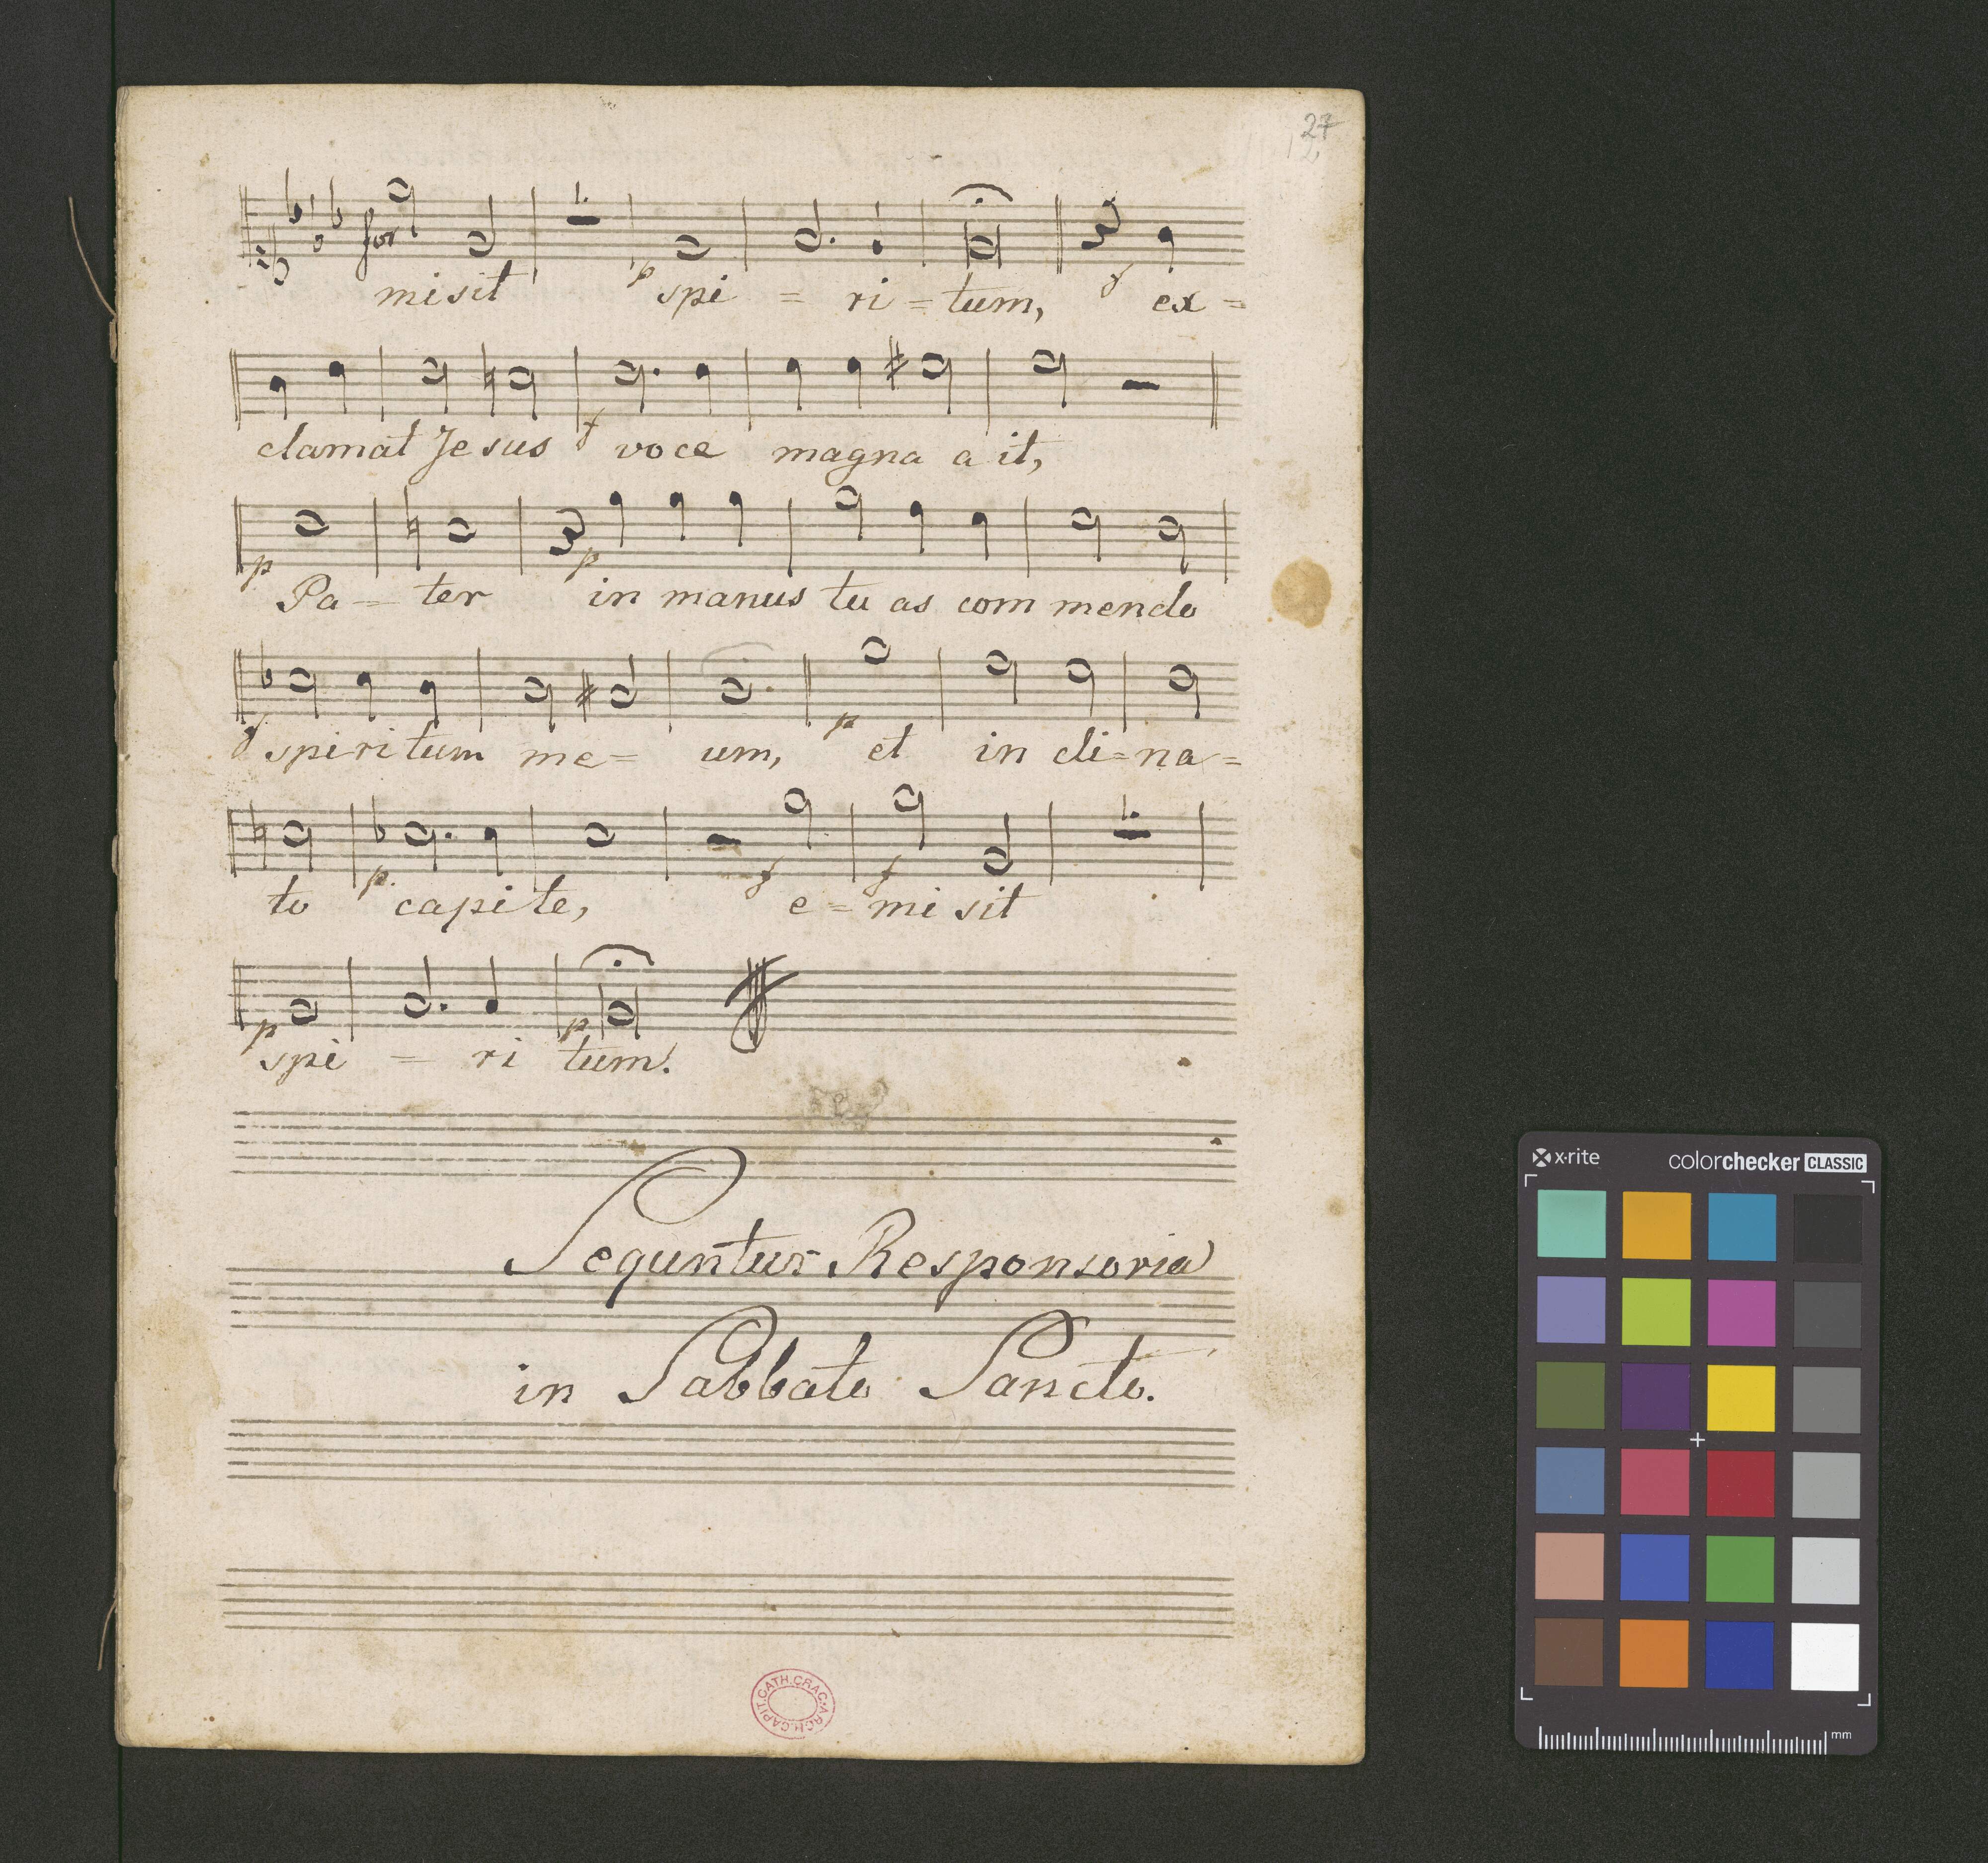 27
for
misit p spi = ri = tum, f ex =
clamat Jesus f voce magna a it,
p Pa = ter p in manus tu as com mendo
f spiritum me = um, p et in cli = na =
to p. capite, f e = f mi sit
p spi = ri p tum.
Sequntur Responsoria
in Sabbato Sancto.
ARCH.CAPIT.CATH.CRAC.
x·rite colorchecker CLASSIC
mm